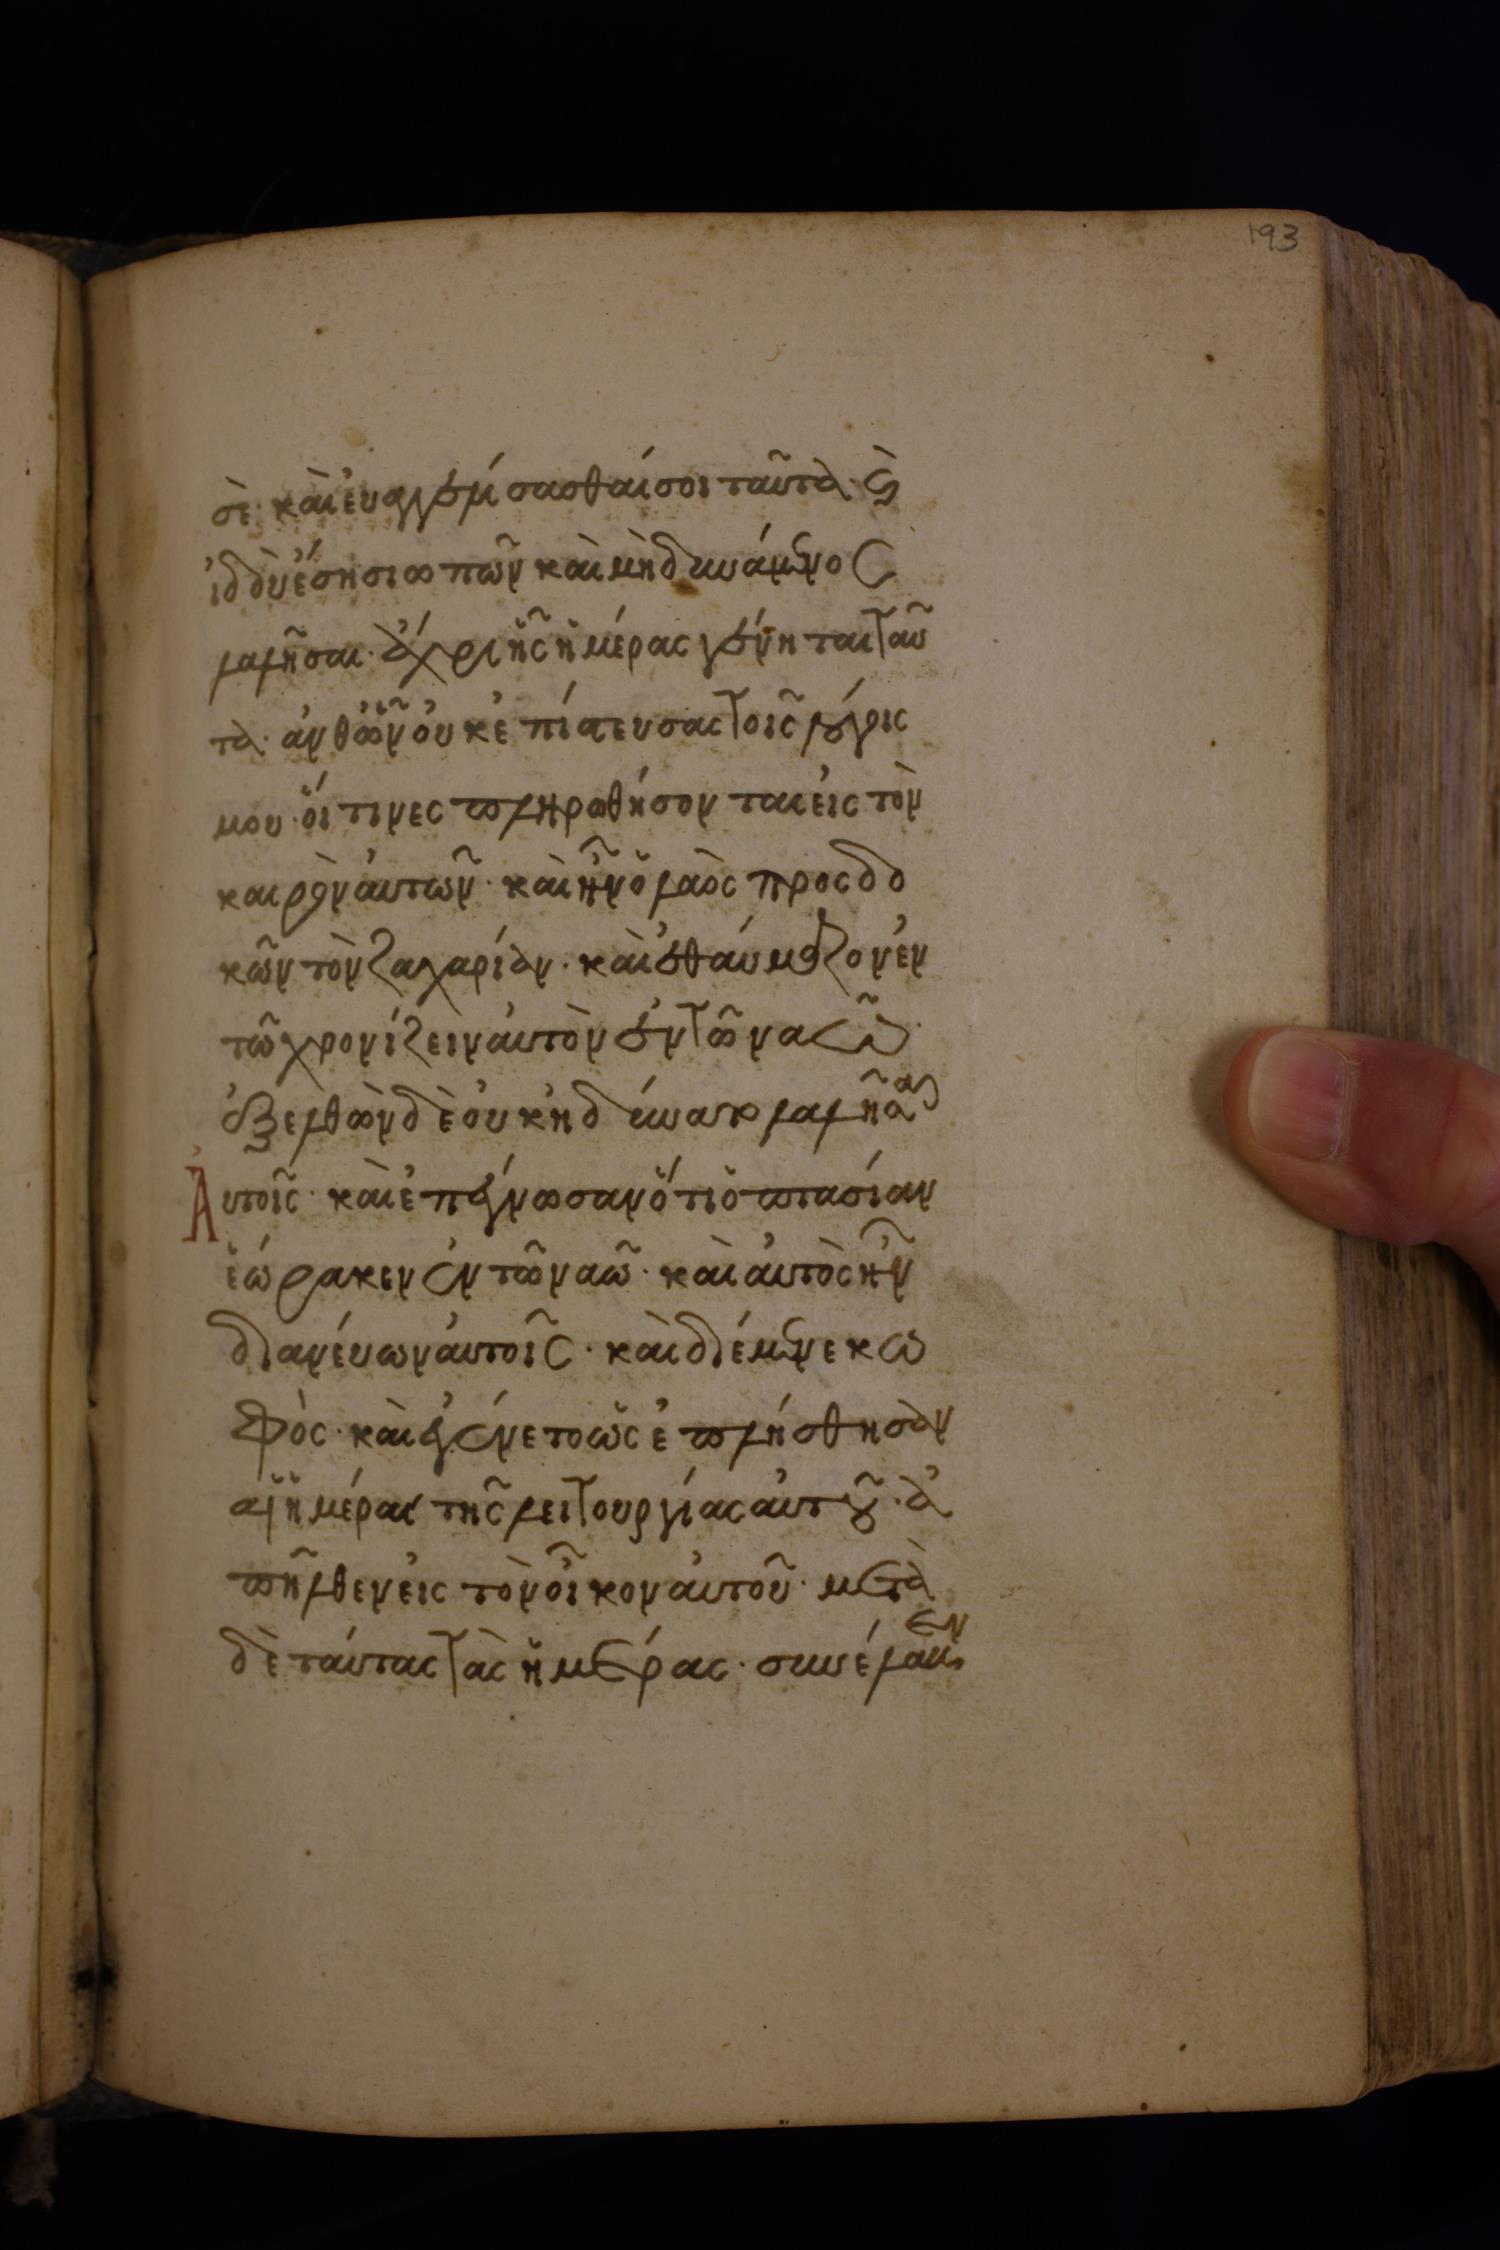 193
σὲ· καὶ ἐυαγγελίσασθαί σοι ταῦτα· καὶ
ἰδοὺ ἔση σιωπῶν καὶ μὴ δυνάμενος
λαλῆσαι· ἄχρι ἧς ἡμέρας γένηται ταῦ
τα· ἀνθῶν οὐκ ἐπίστευσας τοῖς λόγοις
μου· οἵτινες πληρωθήσονται εἰς τὸν
καιρὸν ἀυτῶν· καὶ ἦν ὁ λαὸς προσδο
κῶν τὸν ζαχαρίαν· καὶ ἐθαύμαζον ἐν
τῶ χρονίζειν ἀυτὸν ἐν τῶ ναῶ·
ἐξελθὼν δὲ οὐκ ἠδύνατο λαλῆσαι
Ἀυτοῖς· καὶ ἐπέγνωσαν ὅτι ὀπτασίαν
ἑώρακεν ἐν τῶ ναῶ· καὶ ἀυτὸς ἦν
διανέυων ἀυτοῖς· καὶ διέμενε κω
φὸς· καὶ ἐγένετο ὡς ἐπλήσθησαν
αἱ ἡμέραι τῆς λειτουργίας ἀυτοῦ· ἀ
πῆλθεν εἰς τὸν οἶκον ἀυτοῦ· μετὰ
δὲ ταύτας τὰς ἡμέρας· συνέλαβεν